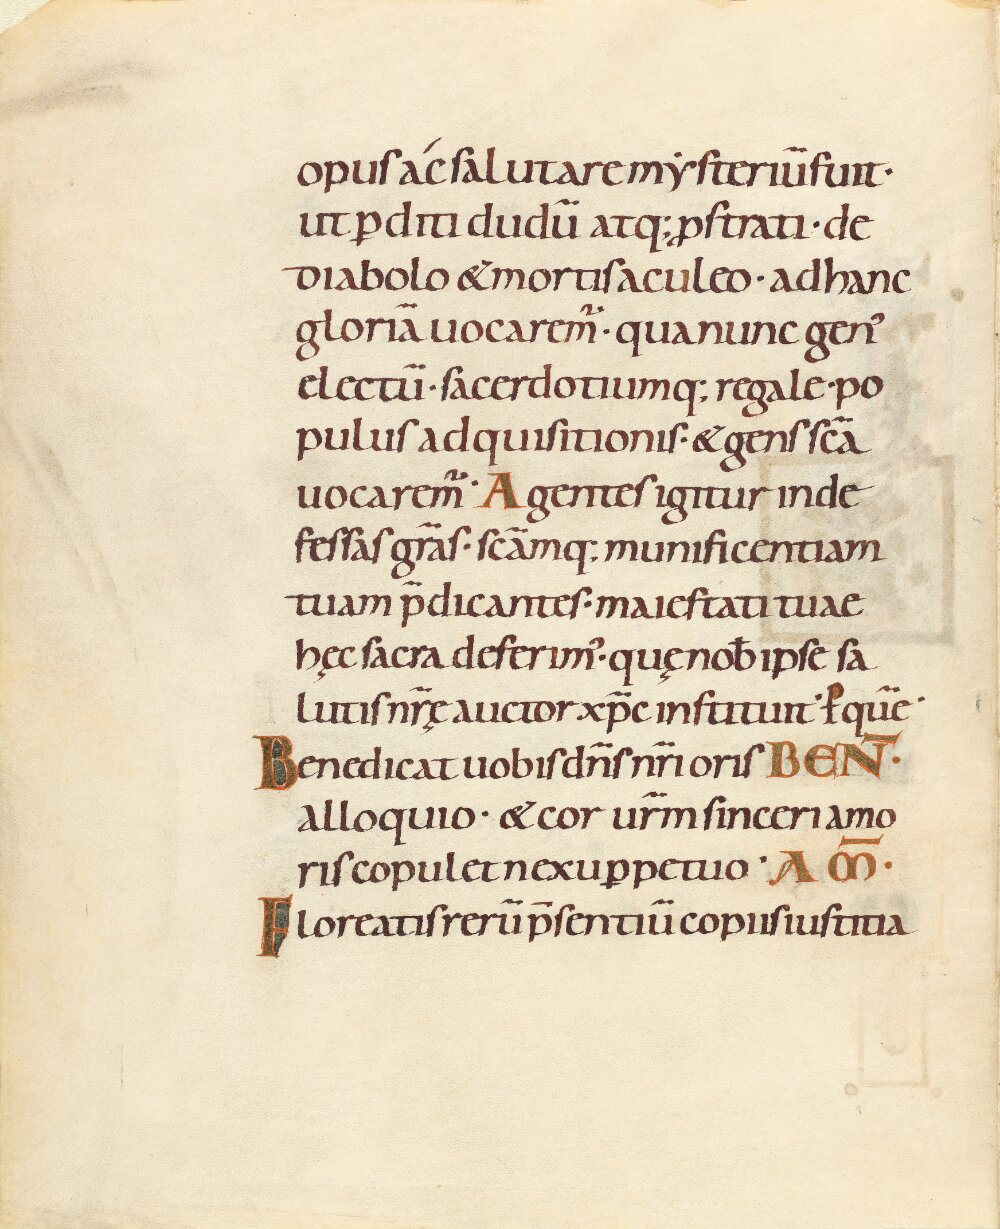 opus ac salutare mẏsteriū fuit·
ut ꝑditi dudū atq; ꝓstrati· de
diabolo & mortis aculeo· ad hanc
gloriā uocarem᷑· qua nunc genꝰ
electū· sacerdotiumq; regale· po
pulus adquisitionis· & gens sc̄a
uocarem᷑· Agentes igitur inde
fessas gr̄as· sc̄amq; munificentiam
tuam p̄dicantes· maiestati tuae
hęc sacra deferimꝰ· quę nob̄ ipse sa
lutis nr̄ę auctor xp̄c instituit· P̱ quē·
Benedicat uobis dn̄s nr̄i oris BEN̄·
alloquio· & cor ur̄m sinceri amo
ris copulet nexu ꝑpetuo· AM̄·
Floreatis rerū p̄sentiū copiis iustitia